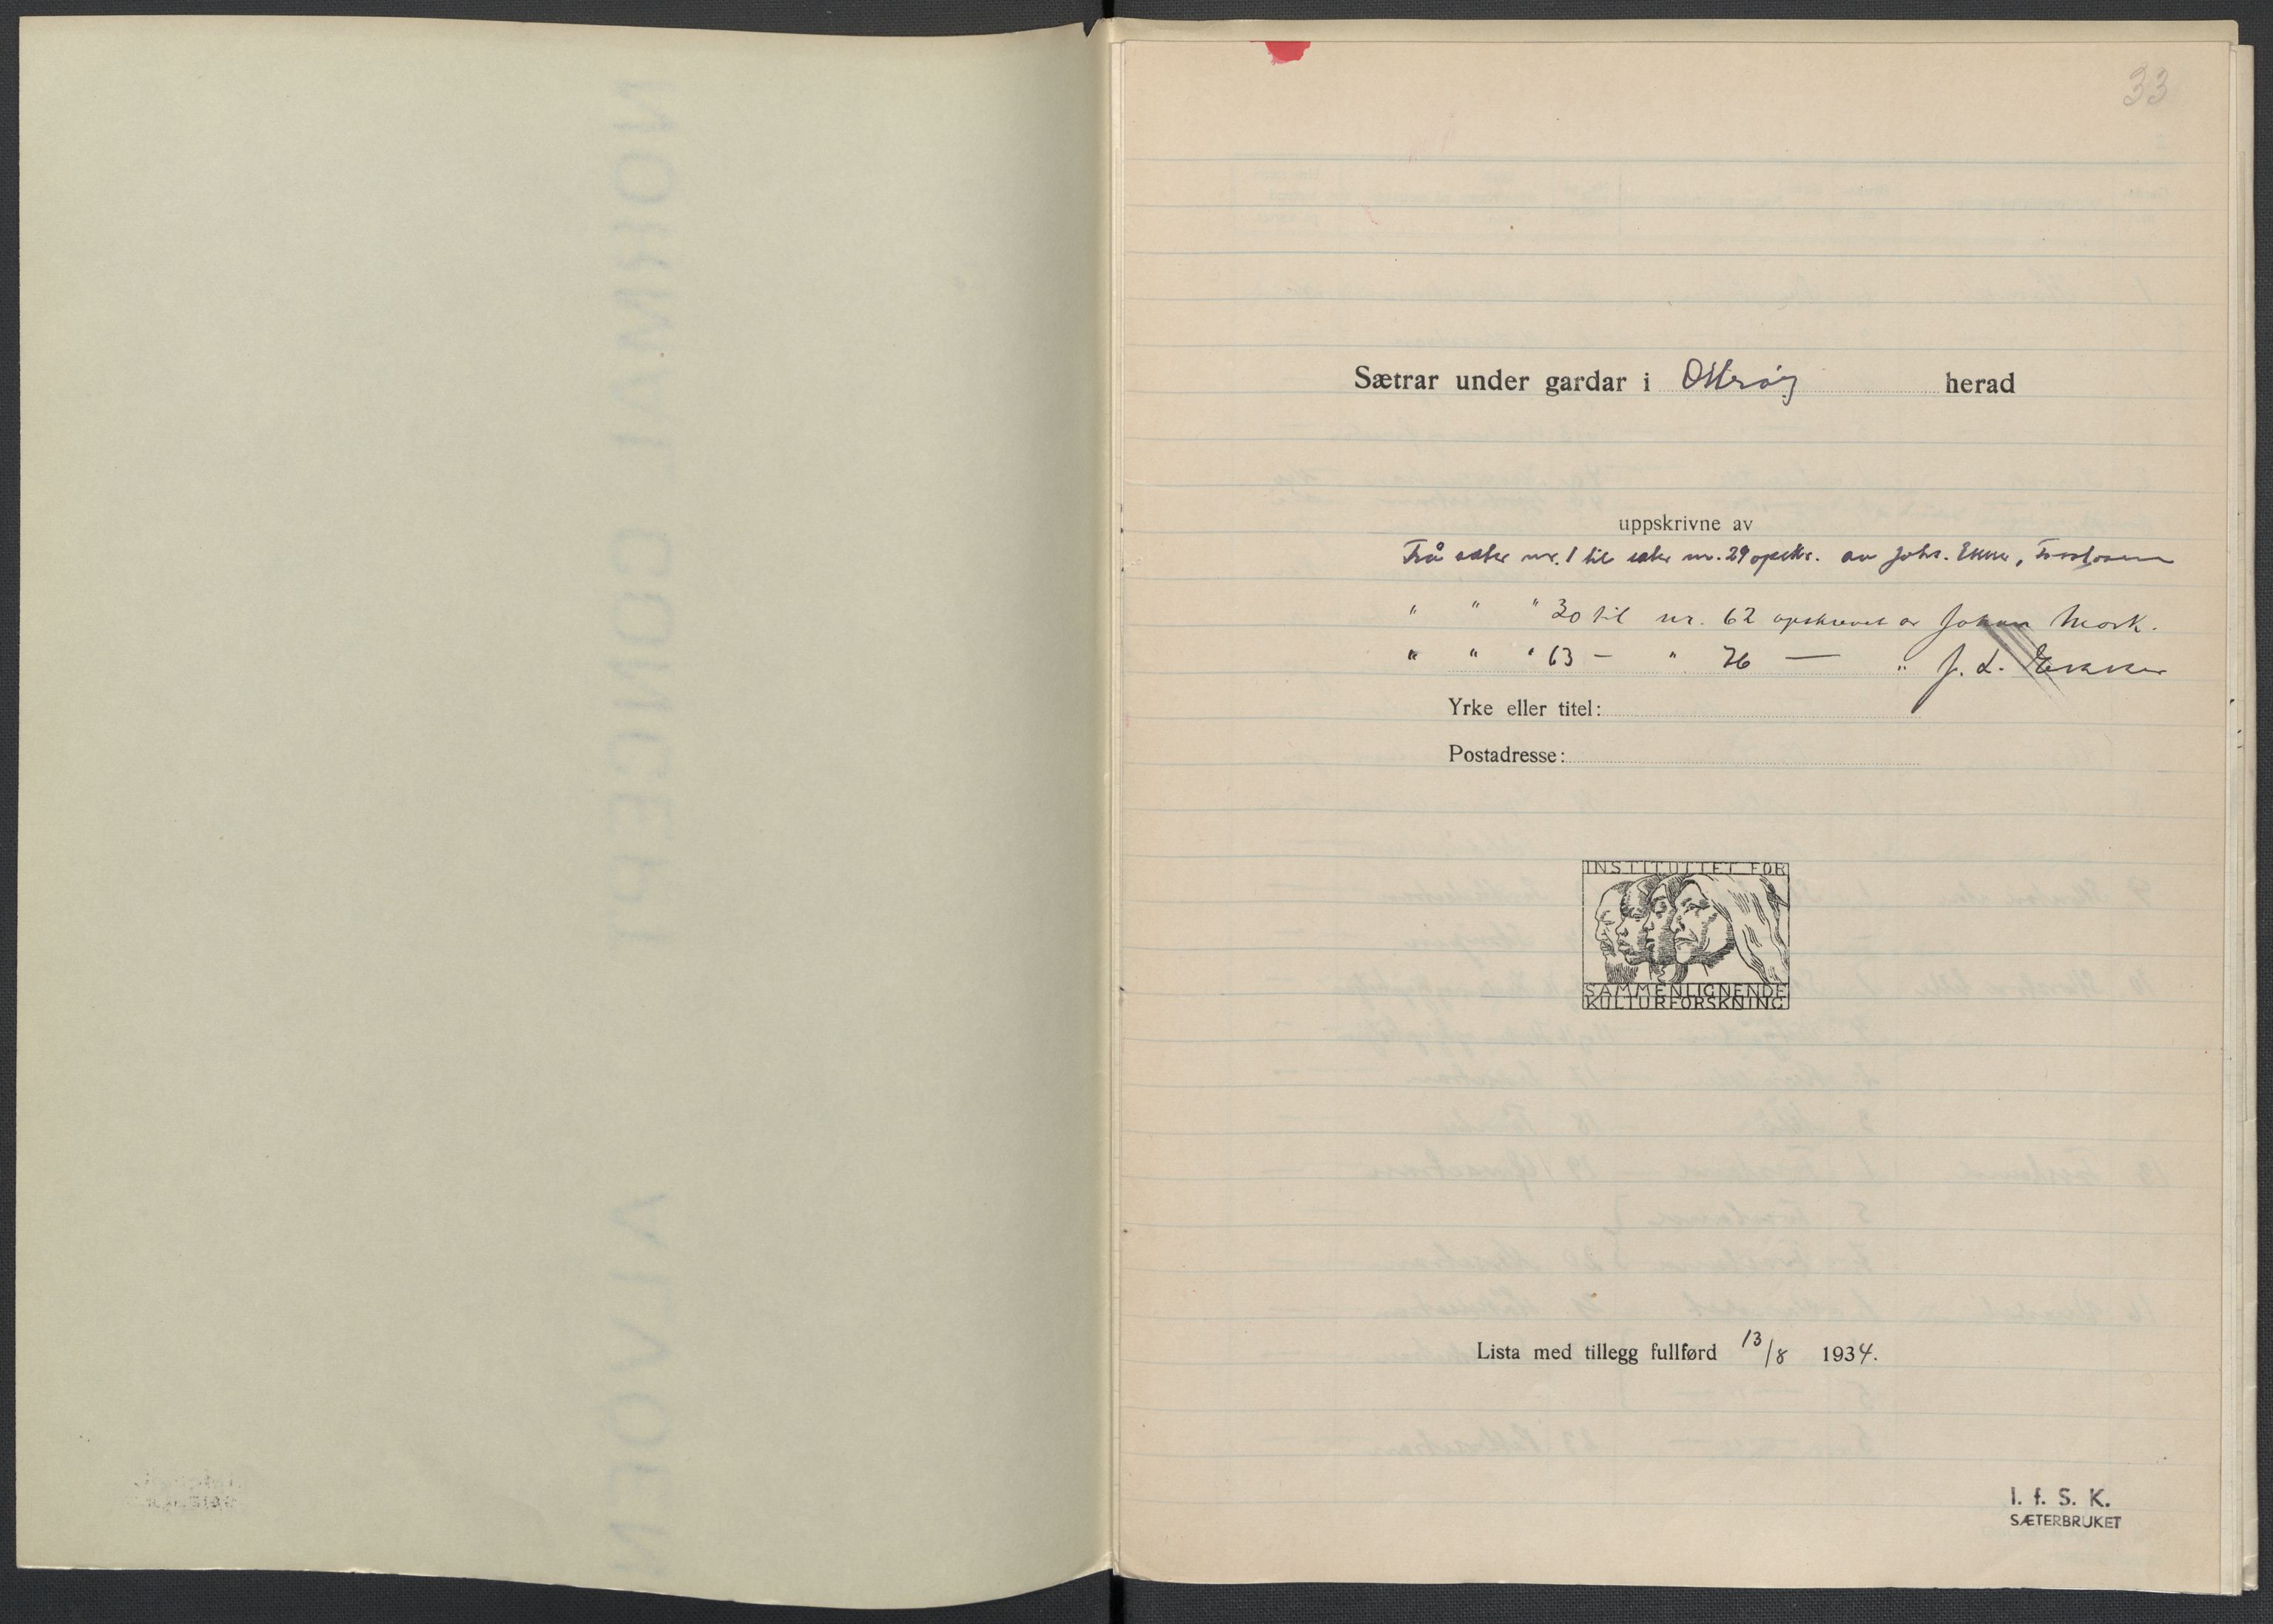 33
Sætrar under gardar i Otterøy herad
uppskrivne av
Frå sæter nr. 1 til sæter nr. 29 opskr. av Johs. Ekker,
" " " 30 til nr. 62 opskrevet av Johan Mork.
" " " 63 — " 76 — " J. L. Ekker
Yrke eller titel:
Postadresse:
INSTITUTTET FOR
SAMMENLIGNENDE
KULTURFORSKNING
Lista med tillegg fullførd 13/8 1934.
I. f. S. K.
SÆTERBRUKET